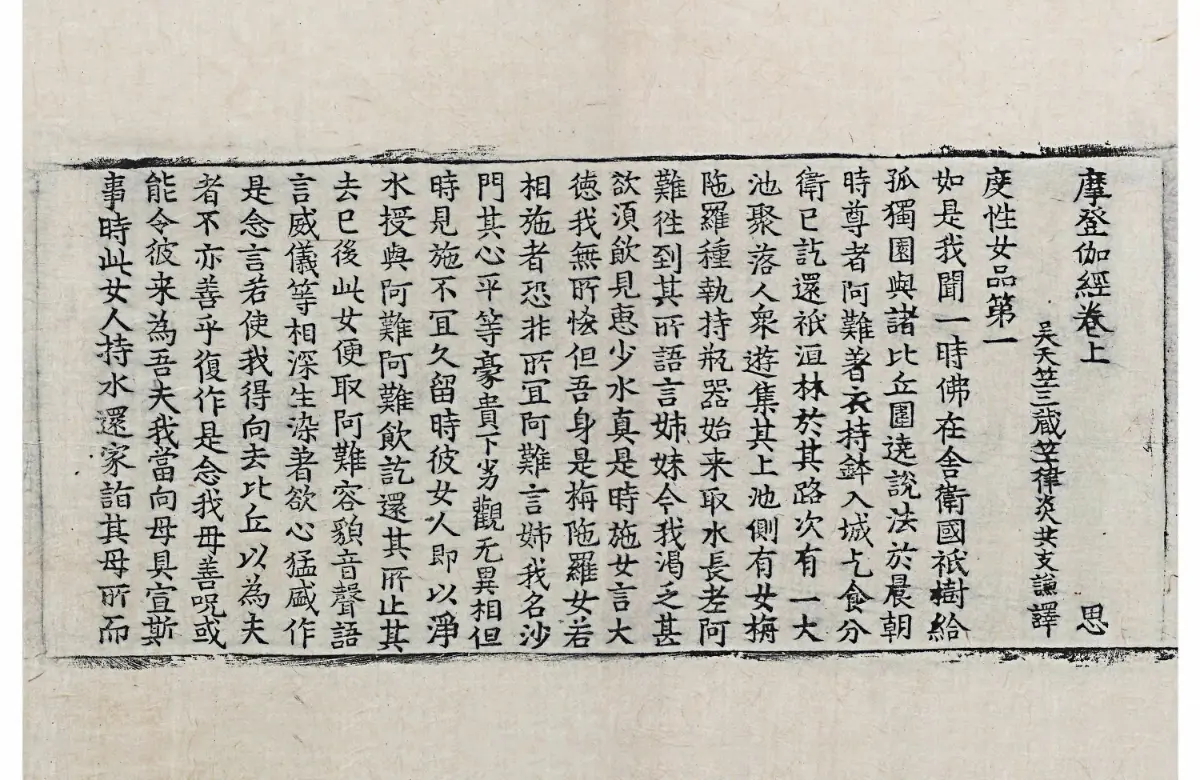 摩登伽經卷上 思
吳天竺三藏竺律炎共支謙譯
度性女品第一
如是我聞一時佛在舍衛國祇樹給
孤獨園與諸比丘圍遶說法於晨朝
時尊者阿難著衣持鉢入城乞食分
衛已訖還祇洹林於其路次有一大
池聚落人衆遊集其上池側有女栴
陁羅種執持瓶器始来取水長老阿
難往到其所語言姊妹今我渴乏甚
欲湏飲見惠少水真是時施女言大
德我無所悋但吾身是栴陁羅女若
相施者恐非所冝阿難言姊我名沙
門其心平等豪貴下劣觀无異相但
時見施不冝久留時彼女人即以淨
水授與阿難阿難飲訖還其所止其
去已後此女便取阿難容貌音聲語
言威儀等相深生染著欲心猛盛作
是念言若使我得向去比丘以為夫
者不亦善乎復作是念我母善呪或
能令彼来為吾夫我當向母具宣斯
事時此女人持水還家詣其母所而